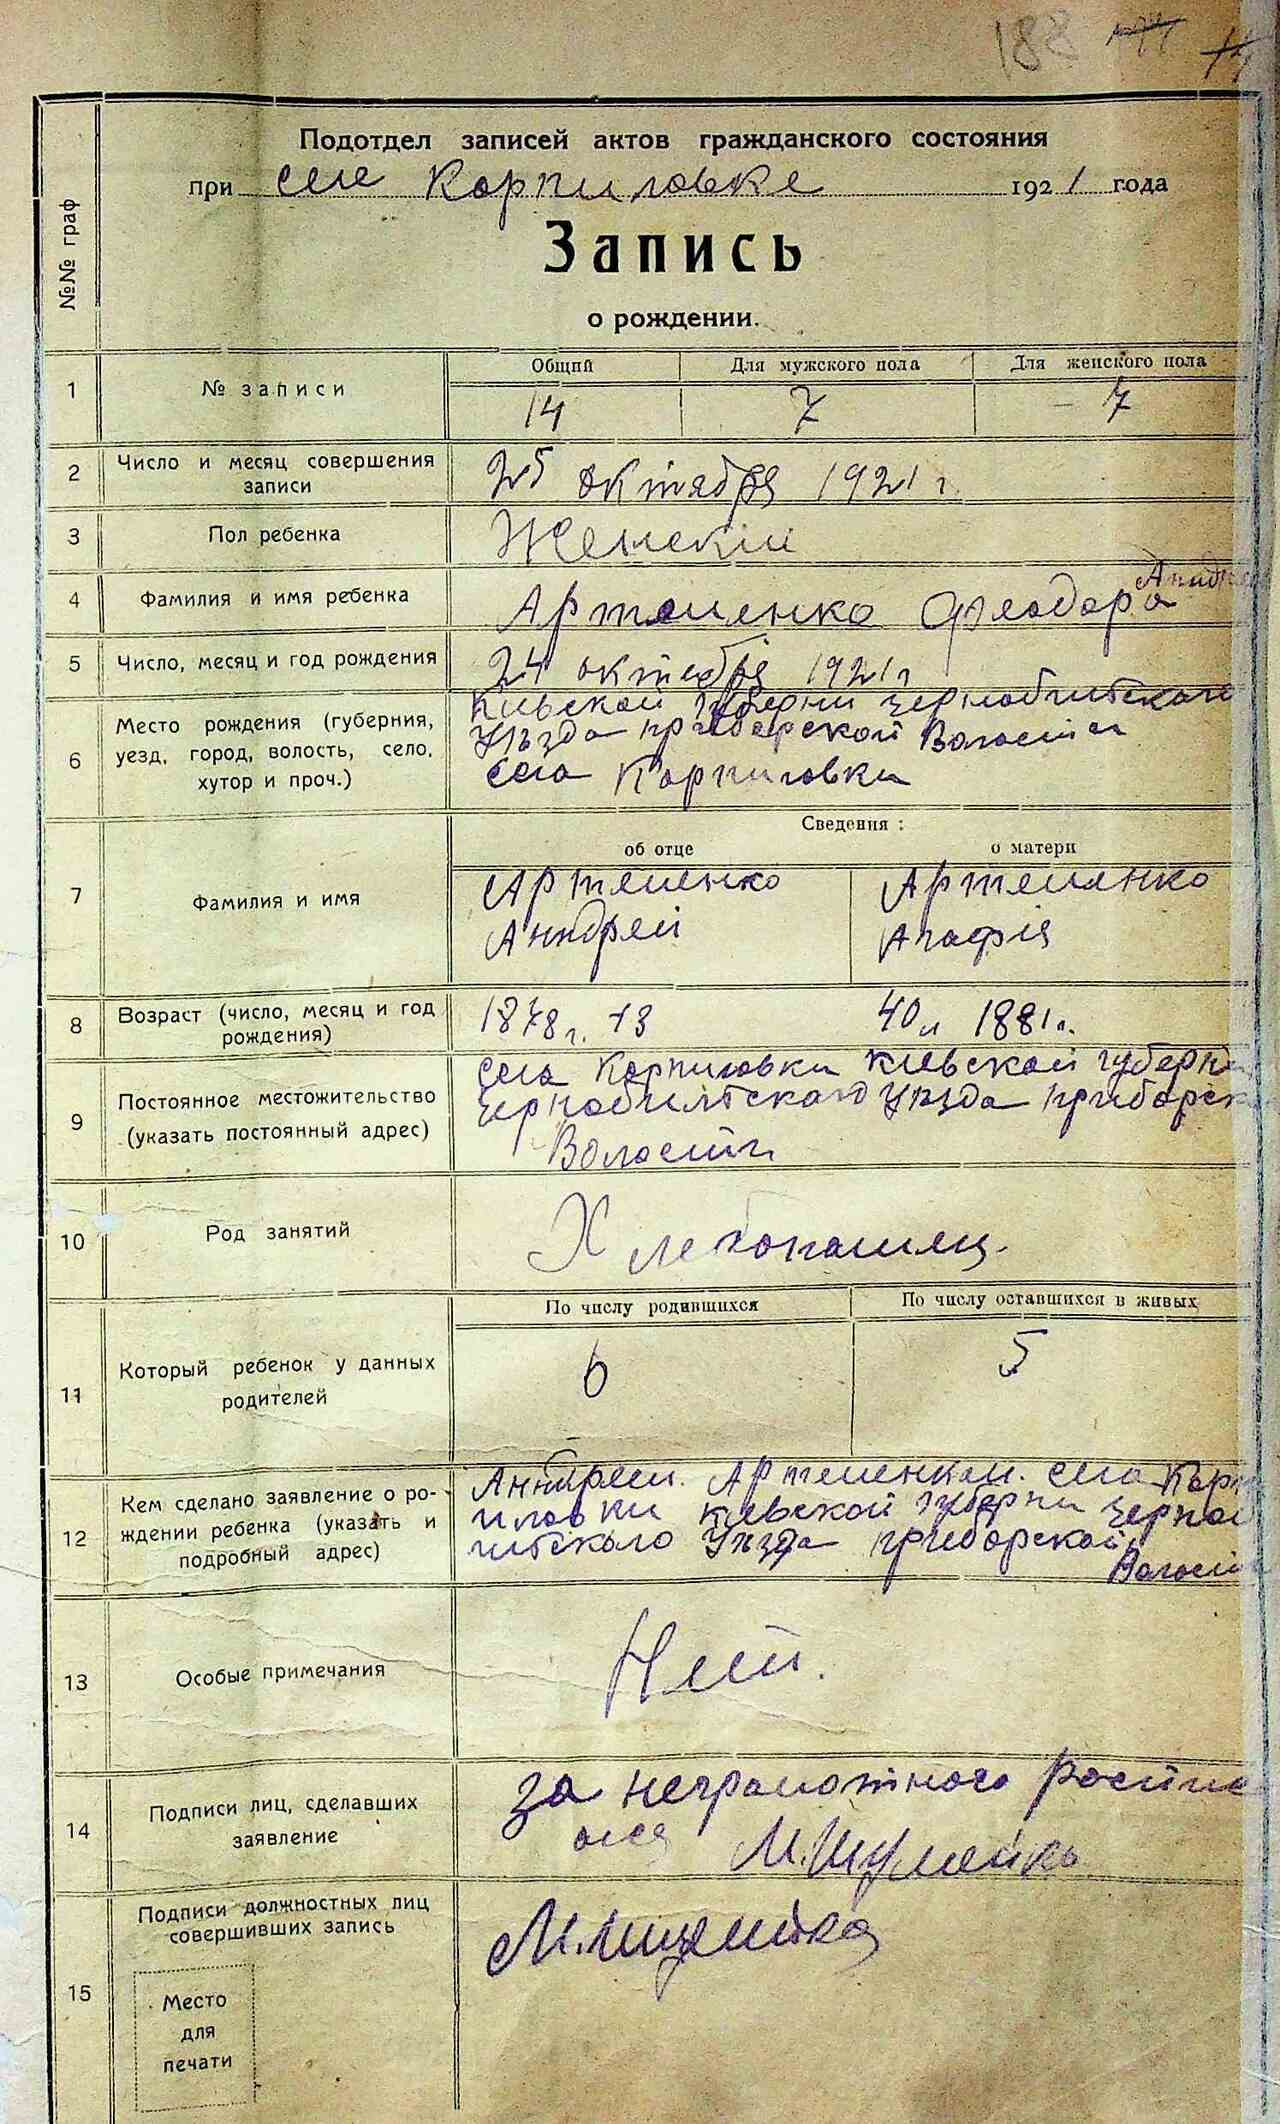 188
Подотдел записей актов гражданского состояния
при селе Корпиловке 1921 года
Запись
о рождении.
№№ граф
Общий Для мужского пола Для женского пола
1 № записи 14 7 7
2 Число и месяц совершения
записи
25 октября 1921 г.
3 Пол ребенка Женскій
4 Фамилия и имя ребенка Артеменко Феодора
5 Число, месяц и год рождения 24 октебрія 1921 г
6 Место рождения (губерния,
уезд, город, волость, село,
хутор и проч.)
Кіевской губерни Чернобилского
Уѣзда приборской Волости
села Корпиловки
Сведения :
об отце о матери
7 Фамилия и имя
Артеменко Артеменко
Анндрей Агафія
8 Возраст (число, месяц и год
рождения)
1878 г. 43 40 л 1881 г.
9 Постоянное местожительство
(указать постоянный адрес)
села Корпиловки Кіевской губерни
Чернобилского Уѣзда приборск
Волости
10 Род занятий Хлебопашец.
По числу родившихся По числу оставшихся в живых
11 Который ребенок у данных
родителей
6 5
12 Кем сделано заявление о ро-
ждении ребенка (указать и
подробный адрес)
Анндреем. Артеменком. села Корп
иловки Кіевской губерни Черноб
илского Уѣзда приборской
Волости
13 Особые примечания Нет.
14 Подписи лиц, сделавших
заявление
за неграмотного роспис
олся М. Шумейко
15 Подписи должностных лиц
совершивших запись
Место
для
печати